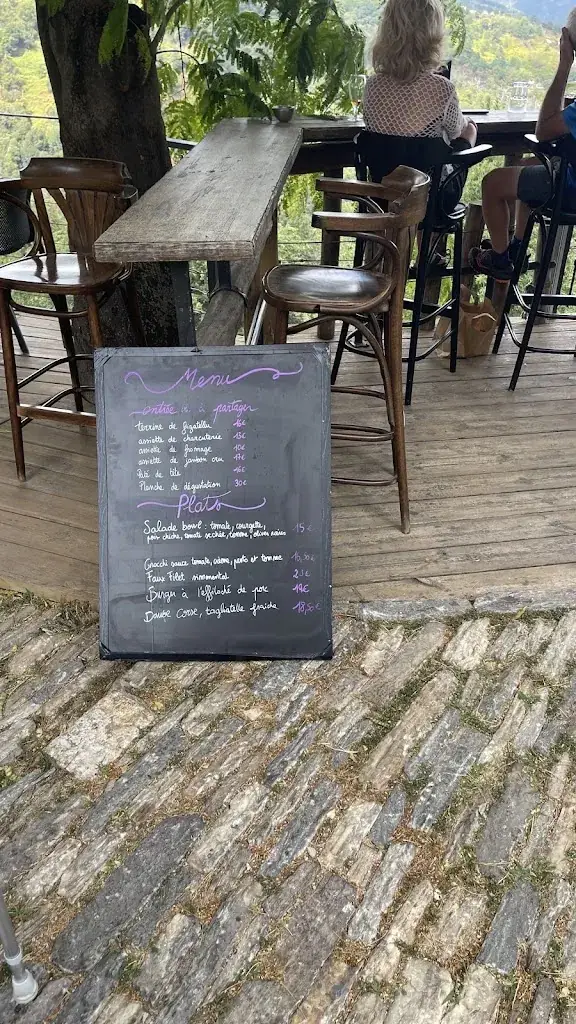 Menu
entrée et à partager
terrine de figatellu 16€
assiette de charcuterie 13€
assiette de fromage 10€
assiette de jambon cru 17€
Paté de tête 16€
Planche de dégustation 30€
Plats
Salade bowl : tomate, courgette,
pois chiche, tomate sechée, comme, olives noires 15€
Gnocchi sauce tomate, pesto et tomme 16,50€
Faux Filet 25€
Burger à l'effiloché de porc 19€
Daube Corse, tagliatelle fraîche 18,50€